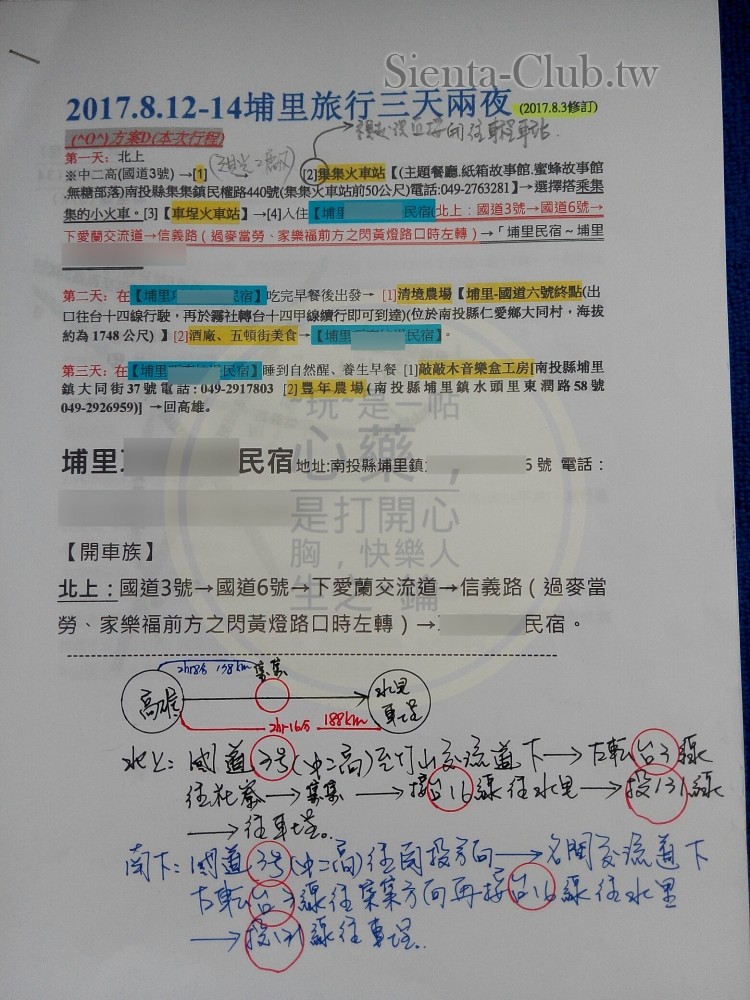 Sienta-Club.tw
2017.8.12-14埔里旅行三天兩夜(2017.8.3修訂)
(^O^)方案D(本次行程)
第一天：北上
※中二高(國道3號) →[1] [2]集集火車站【(主題餐廳.紙箱故事館.蜜蜂故事館
.無糖部落)南投縣集集鎮民權路440號(集集火車站前50公尺)電話:049-2763281】→選擇搭乘集
集的小火車。[3]【車埕火車站】→[4]入住【埔里 民宿(北上：國道3號→國道6號→
下愛蘭交流道→信義路（過麥當勞、家樂福前方之閃黃燈路口時左轉）→「埔里民宿～埔里
第二天：在【埔里 民宿】吃完早餐後出發→ [1]清境農場【埔里-國道六號終點(出
口往台十四線行駛，再於霧社轉台十四甲線續行即可到達)(位於南投縣仁愛鄉大同村，海拔
約為 1748 公尺) 】[2]酒廠、五頓街美食→【埔里 民宿】。
第三天：在【埔里 民宿】睡到自然醒、養生早餐 [1]敲敲木音樂盒工房[南投縣埔里
鎮大同街37號電話:049-2917803 [2]豐年農場(南投縣埔里鎮水頭里東潤路58號
049-2926959)] →回高雄。
~玩~是一帖
心藥，
是打開心
胸，快樂人
生之鑰
埔里 民宿地址:南投縣埔里鎮 5 號 電話：
【開車族】
北上：國道3號→國道6號→下愛蘭交流道→信義路（過麥當
勞、家樂福前方之閃黃燈路口時左轉）→ 民宿。
2hr8分 138km 集集
高雄 水里
車埕
2hr16分 188km
北上: 國道3号(中二高)至竹山交流道下→左転台3線
往社寮→集集→接台16線往水里→投131線
→往車埕..
南下: 國道3号(中二高)往南投方向→名間交流道下
左転台3線往集集方向再接台16線往水里
→投131線往車埕..